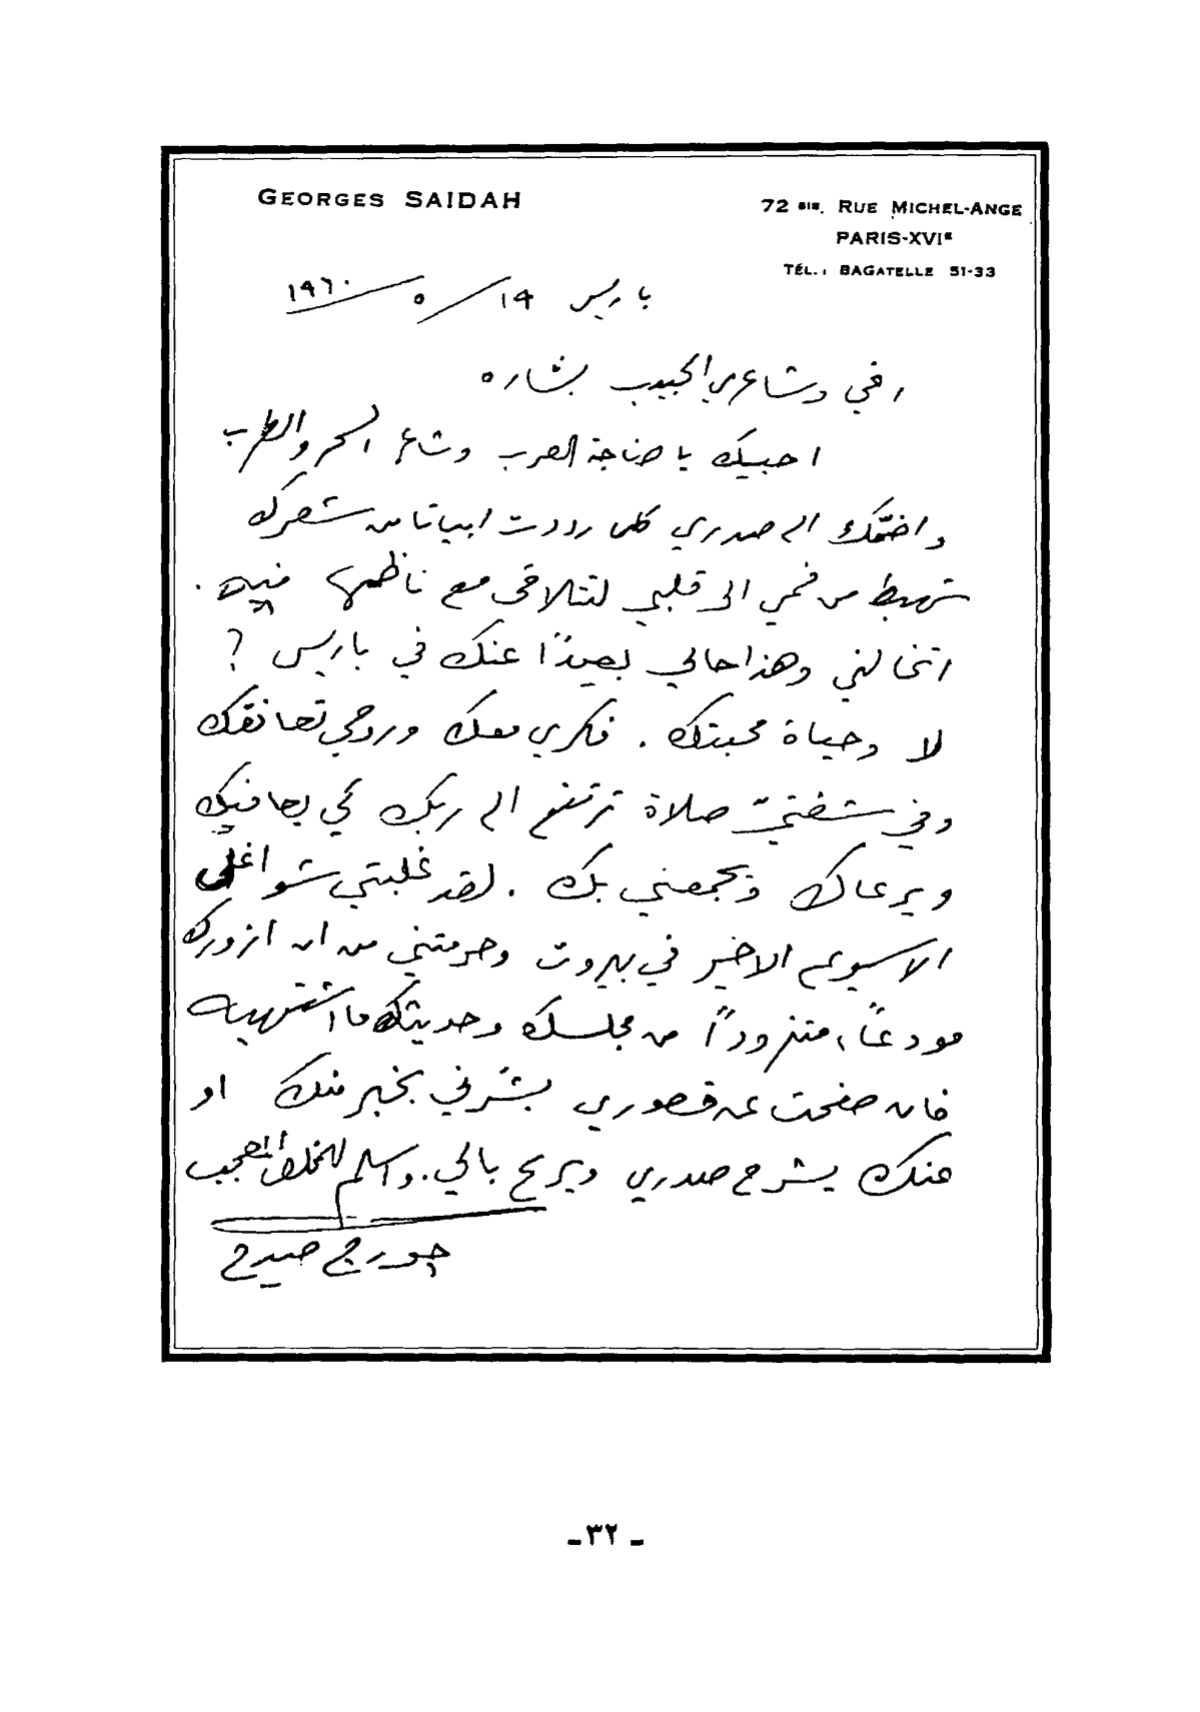 GEORGES SAIDAH
72 BIS. RUE MICHEL-ANGE
PARIS-XVIE
TÉL.: BAGATELLE 51-33
باريس ١٩/٥/١٩٦٠
اخي وشاعري الحبيب بشاره
احييك يا صناجة العرب وشاعر السحر والطرب
واضمّك الى صدري كلما رددت ابياتا من شعرك
تهبط من فمي الى قلبي لتتلاقى مع ناظمها فيه.
اتخالني وهذا حالي بعيدًا عنك في باريس ؟
لا وحياة محبتك. فكري معك وروحي تعانقك
وفي شفتيّ صلاة ترتفع الى ربك كي يعافيك
ويرعاك ويجمعني بك. لقد غلبتني شواغلي
الاسبوع الاخير في بيروت وحرمتني من ان ازورك
مودعًا، متزودًا من مجلسك وحديثك ما اشتهيه
فان صفحت عن قصوري بشّرني بخبر منك او
عنك يشرح صدري ويريح بالي. واسلم للمخلص المعجب
جورج صيدح
ـ ٣٢ ـ